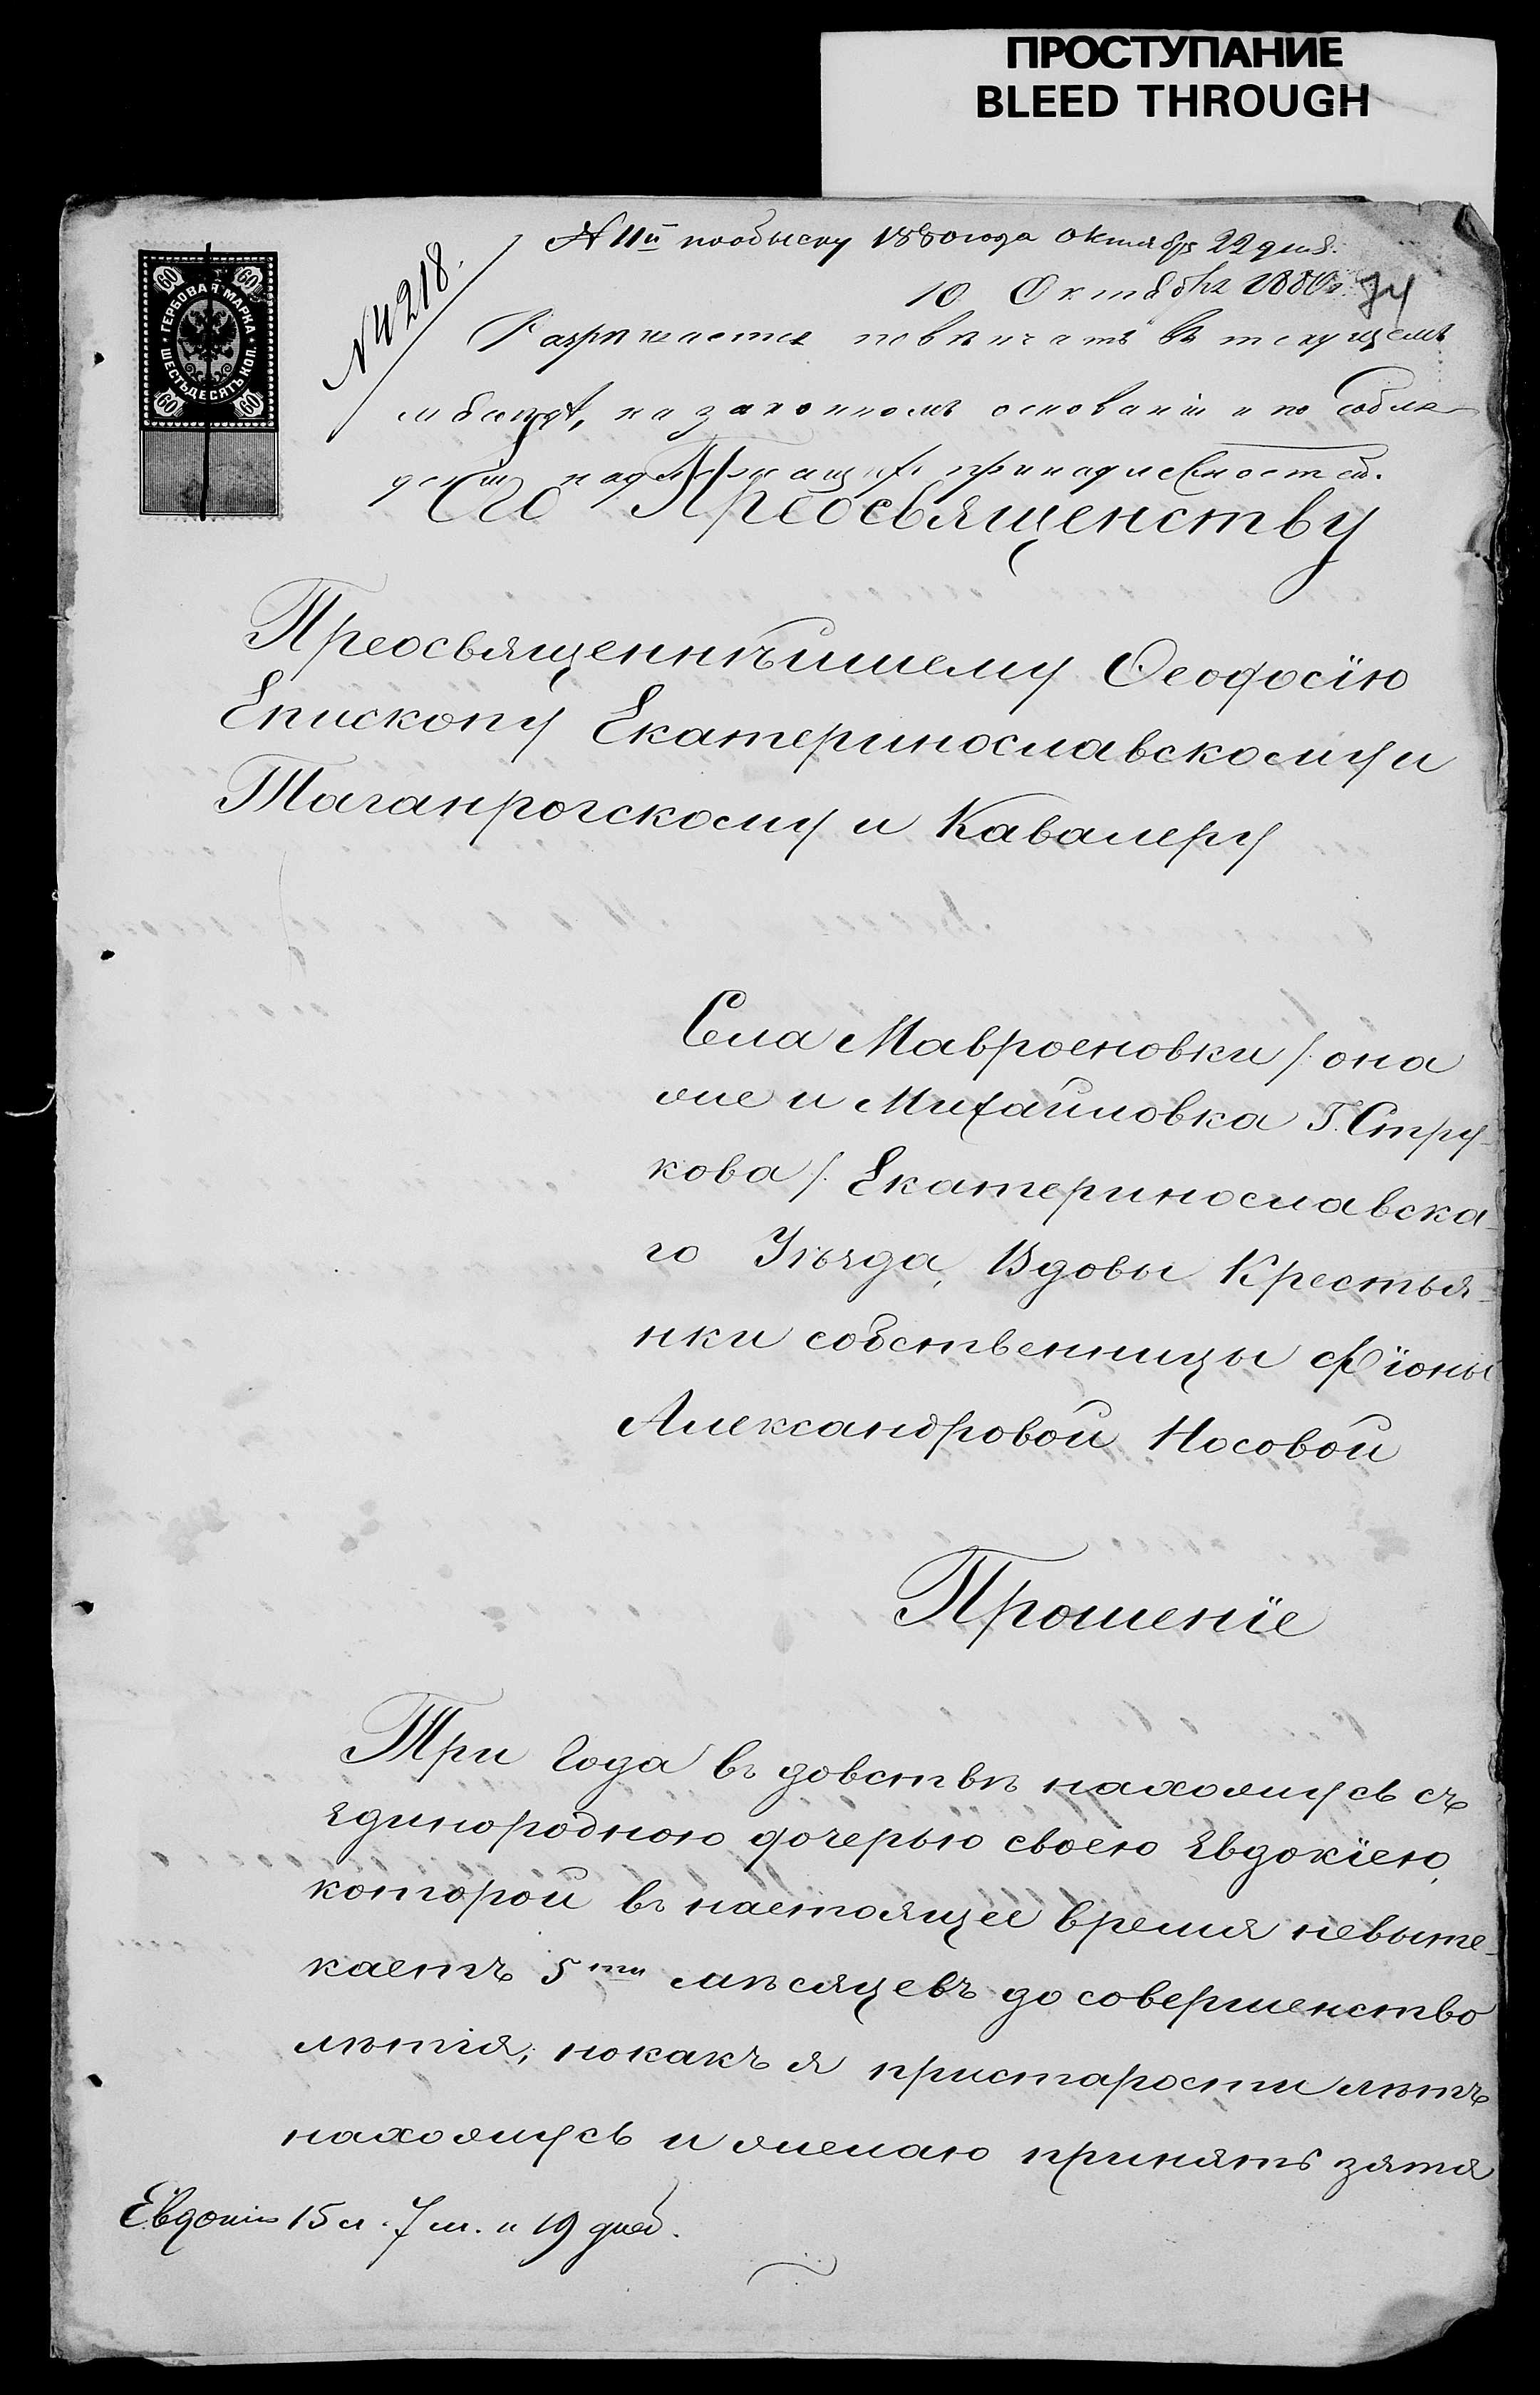 ПРОСТУПАНИЕ
BLEED THROUGH
№ 11й пообыску 1880 года октября 22 дня.
№ 4218.
10 Октября 1880 г. 74
Разрѣшается повѣнчать въ текущемъ
мѣсяцѣ, на законномъ основаніи и по соблю-
деніи надлежащихъ принадлежностей.
60 60
ГЕРБОВАЯ МАРКА
ШЕСТЬДЕСЯТЬ КОП.
60 60
Его Преосвященству
Преосвященнѣйшему Ѳеодосїю
Епископу Екатеринославскому и
Таганрогскому и Кавалеру
Села Мавроеновки /: она
же и Михайловка Г. Стру-
кова /: Екатеринославска-
го Уѣзда, Вдовы Крестья-
нки собственницы Фїоны
Александровой Носовой
Прошенїе
Три года въ довствѣ нахожусь съ
единородною дочерью своею Евдокїею,
которой въ настоящее время невыте-
каетъ 5ти мѣсяцевъ до совершенство
лѣтія; нокакъ я пристарости лѣтъ
нахожусь и желаю принять зятя
Евдокіи 15 л. 7 м. и 19 дней.